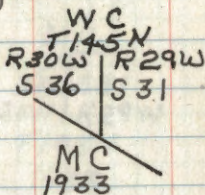 W C
T145N
R30W R29W
S 36 S 31
M C
1933